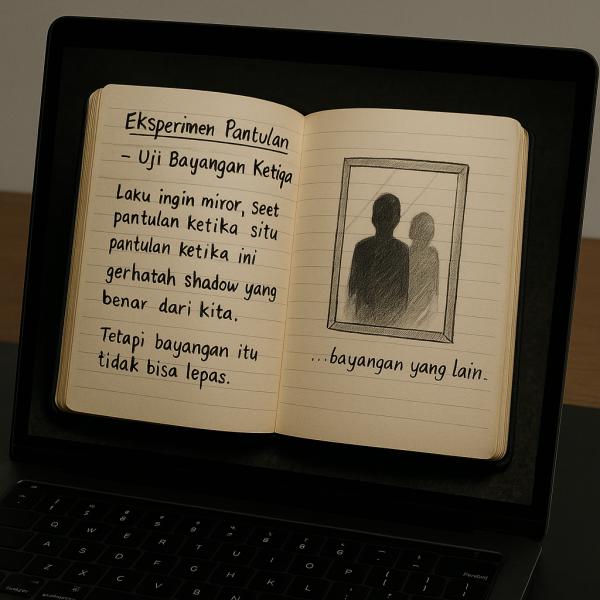 Eksperimen Pantulan
– Uji Bayangan Ketiga
Laku ingin miror, seet
pantulan ketika situ
pantulan ketika ini
gerhatah shadow yang
benar dari kita.
Tetapi bayangan itu
tidak bisa lepas.
...bayangan yang lain.
Q W E R T U I O P
A S D F G H K L
Z X C V B N M